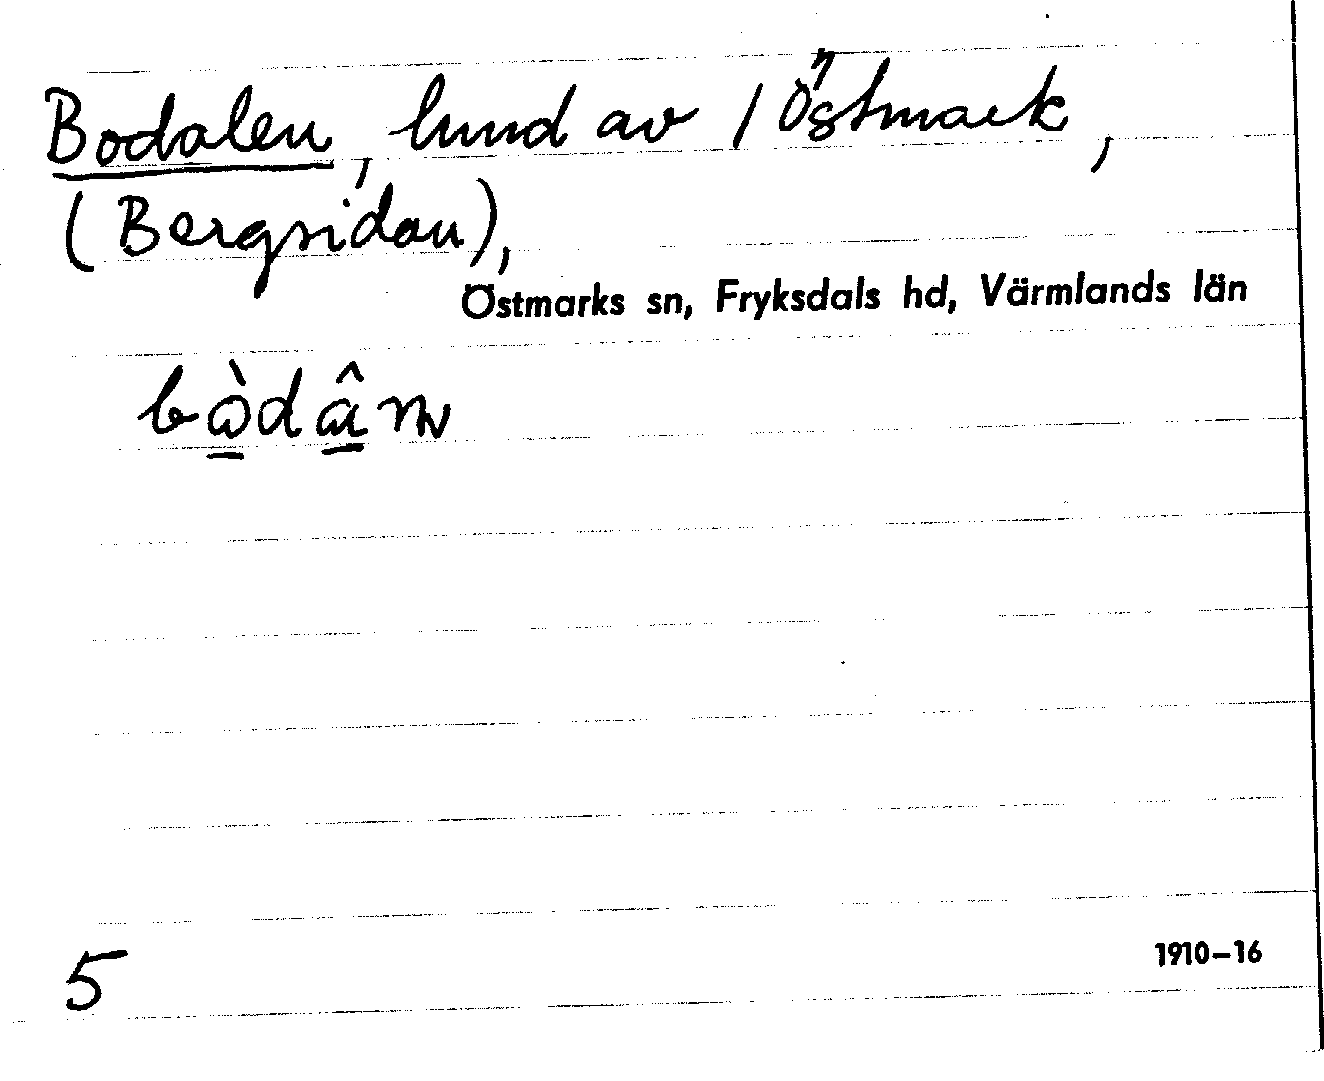 Bodalen, lund av 1 Östmark,
(Bergsidan),
Östmarks sn, Fryksdals hd, Värmlands län
5
1910–16